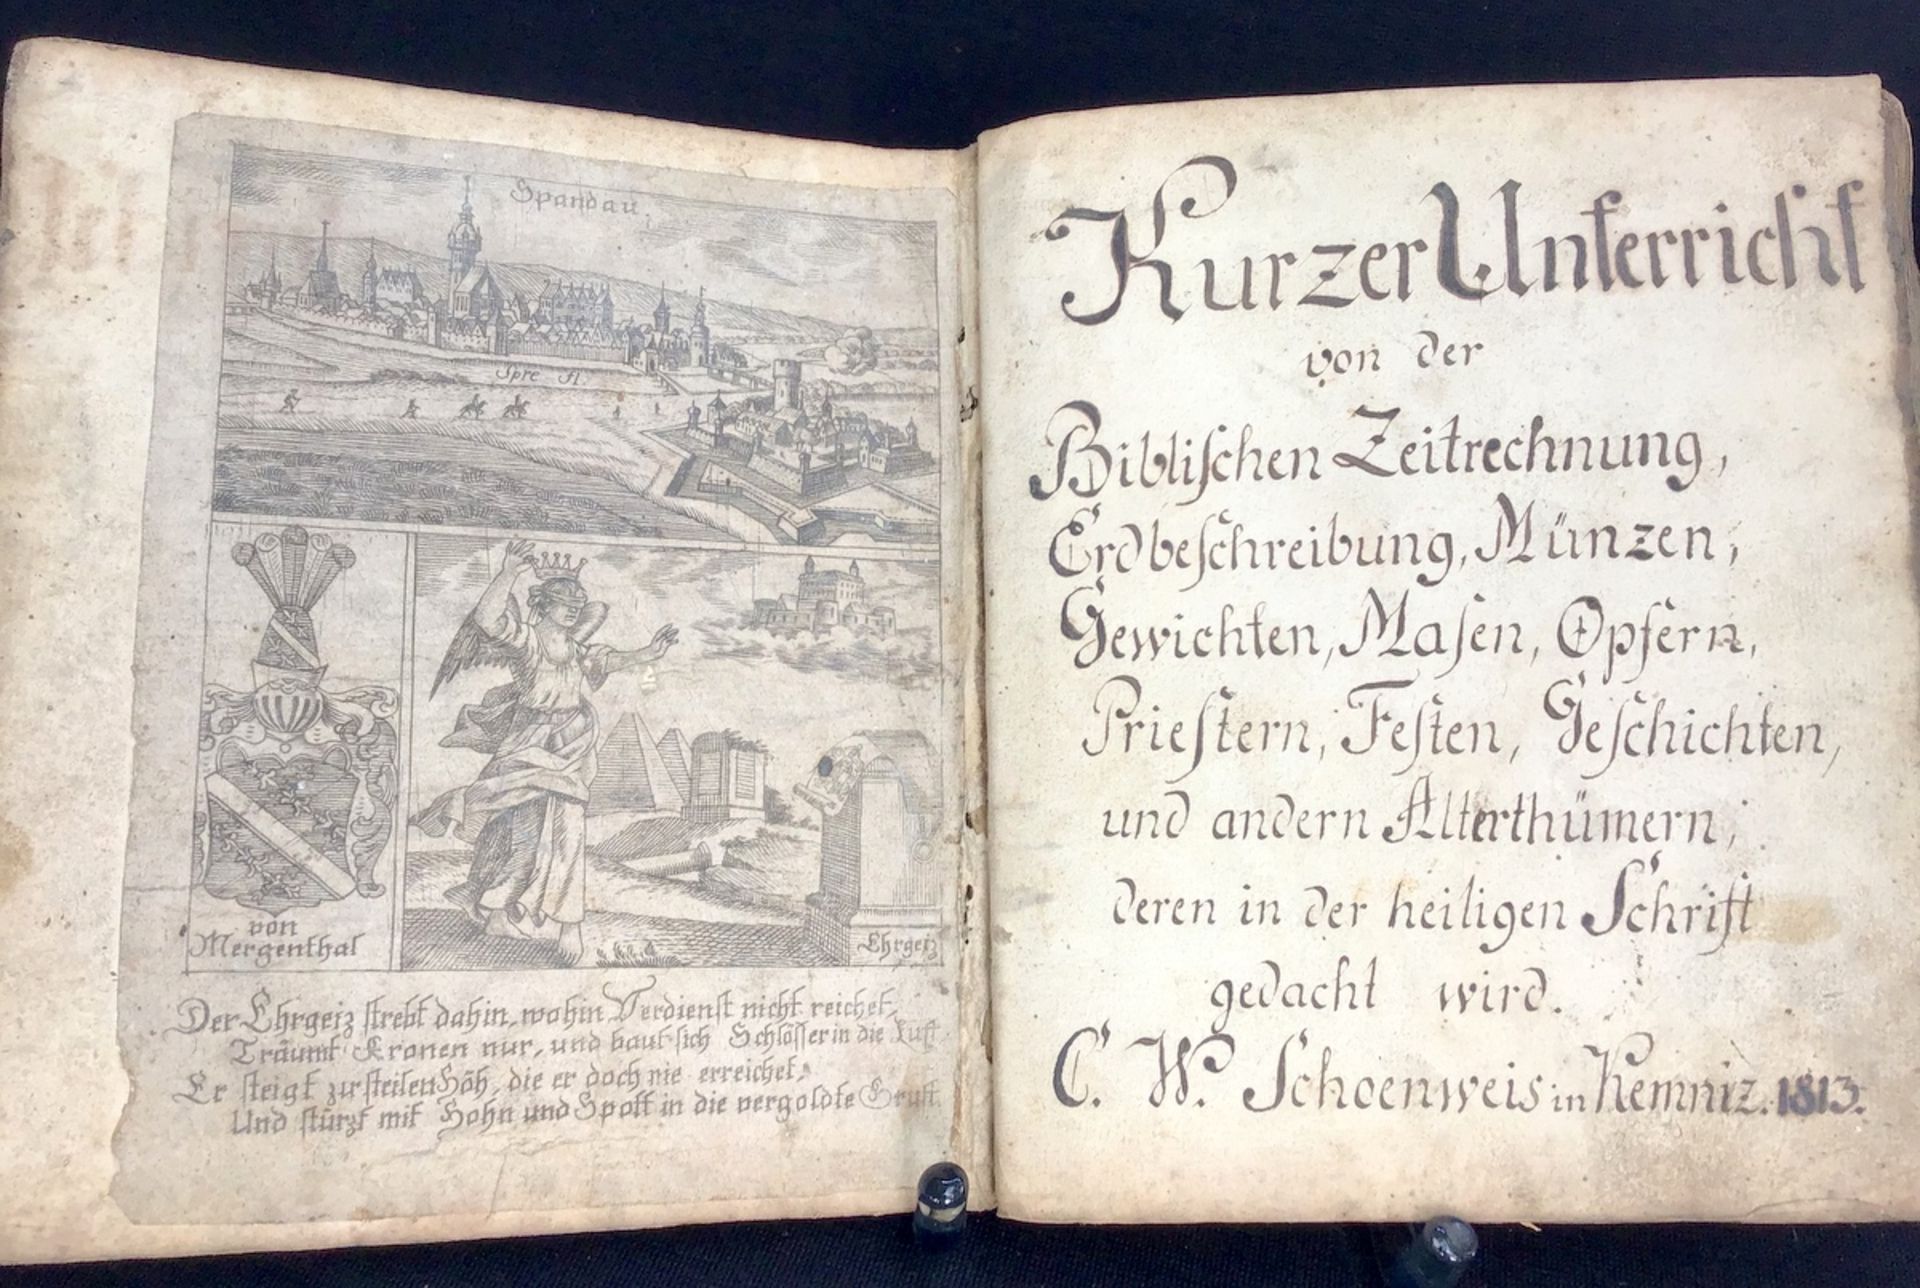 Spandau.
Spre fl.
von
Mergenthal
Ehrgeiz
Der Ehrgeiz strebt dahin, wohin Verdienst nicht reichet,
Träumt Kronen nur, und baut sich Schlösser in die Luft
Er steigt zur steilen Höh, die er doch nie erreichet,
Und stürzt mit Hohn und Spott in die vergoldte Gruft.
Kurzer Unterricht
von der
Bibliſchen Zeitrechnung,
Erdbeſchreibung, Münzen,
Gewichten, Maſen, Opfern,
Prieſtern, Feſten, Geſchichten,
und andern Alterthümern,
deren in der heiligen Schrift
gedacht wird.
C. W. Schoenweis in Kemniz. 1813.